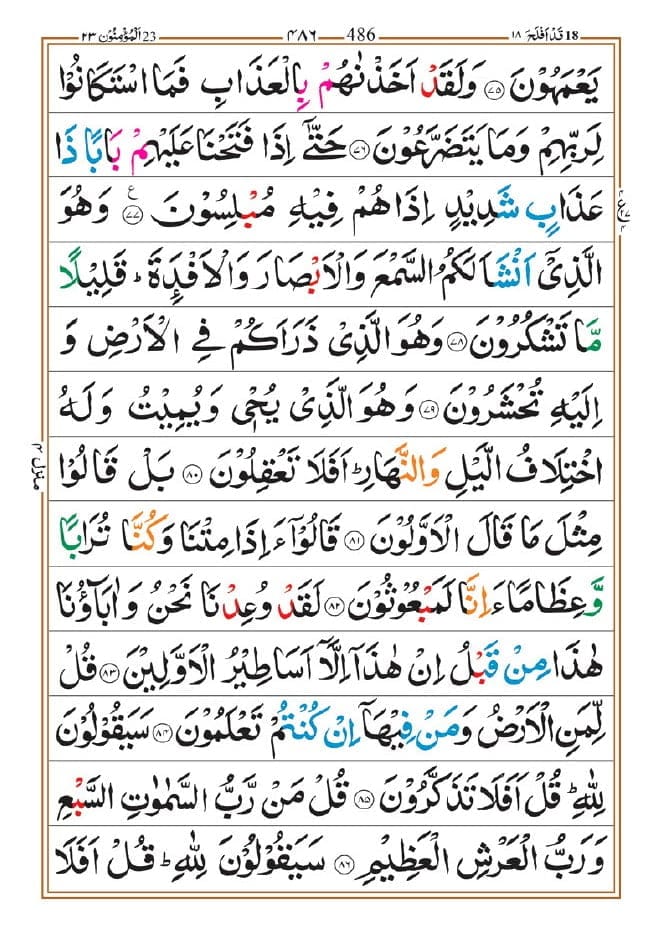 18 قَدْ اَفْلَحَ ١٨ 486 ٤٨٦ 23 اَلْمُؤْمِنُوْنَ ٢٣
يَعْمَهُوْنَ ﴿٧٥﴾ وَلَقَدْ اَخَذْنٰهُمْ بِالْعَذَابِ فَمَا اسْتَكَانُوْا
لِرَبِّهِمْ وَمَا يَتَضَرَّعُوْنَ ﴿٧٦﴾ حَتّٰٓى اِذَا فَتَحْنَا عَلَيْهِمْ بَابًا ذَا
عَذَابٍ شَدِيْدٍ اِذَا هُمْ فِيْهِ مُبْلِسُوْنَ ﴿٧٧﴾ ع وَهُوَ
الَّذِيْٓ اَنْشَاَ لَكُمُ السَّمْعَ وَالْاَبْصَارَ وَالْاَفْـِٕدَةَ ؕ قَلِيْلًا
مَّا تَشْكُرُوْنَ ﴿٧٨﴾ وَهُوَ الَّذِيْ ذَرَاَكُمْ فِي الْاَرْضِ وَ
اِلَيْهِ تُحْشَرُوْنَ ﴿٧٩﴾ وَهُوَ الَّذِيْ يُحْيٖ وَيُمِيْتُ وَلَهُ
اخْتِلَافُ الَّيْلِ وَالنَّهَارِ ؕ اَفَلَا تَعْقِلُوْنَ ﴿٨٠﴾ بَلْ قَالُوْا
منزل ٤
مِثْلَ مَا قَالَ الْاَوَّلُوْنَ ﴿٨١﴾ قَالُوْٓا ءَاِذَا مِتْنَا وَكُنَّا تُرَابًا
وَّعِظَامًا ءَاِنَّا لَمَبْعُوْثُوْنَ ﴿٨٢﴾ لَقَدْ وُعِدْنَا نَحْنُ وَاٰبَآؤُنَا
هٰذَا مِنْ قَبْلُ اِنْ هٰذَآ اِلَّآ اَسَاطِيْرُ الْاَوَّلِيْنَ ﴿٨٣﴾ قُلْ
لِّمَنِ الْاَرْضُ وَمَنْ فِيْهَآ اِنْ كُنْتُمْ تَعْلَمُوْنَ ﴿٨٤﴾ سَيَقُوْلُوْنَ
لِلّٰهِ ؕ قُلْ اَفَلَا تَذَكَّرُوْنَ ﴿٨٥﴾ قُلْ مَنْ رَّبُّ السَّمٰوٰتِ السَّبْعِ
وَرَبُّ الْعَرْشِ الْعَظِيْمِ ﴿٨٦﴾ سَيَقُوْلُوْنَ لِلّٰهِ ؕ قُلْ اَفَلَا